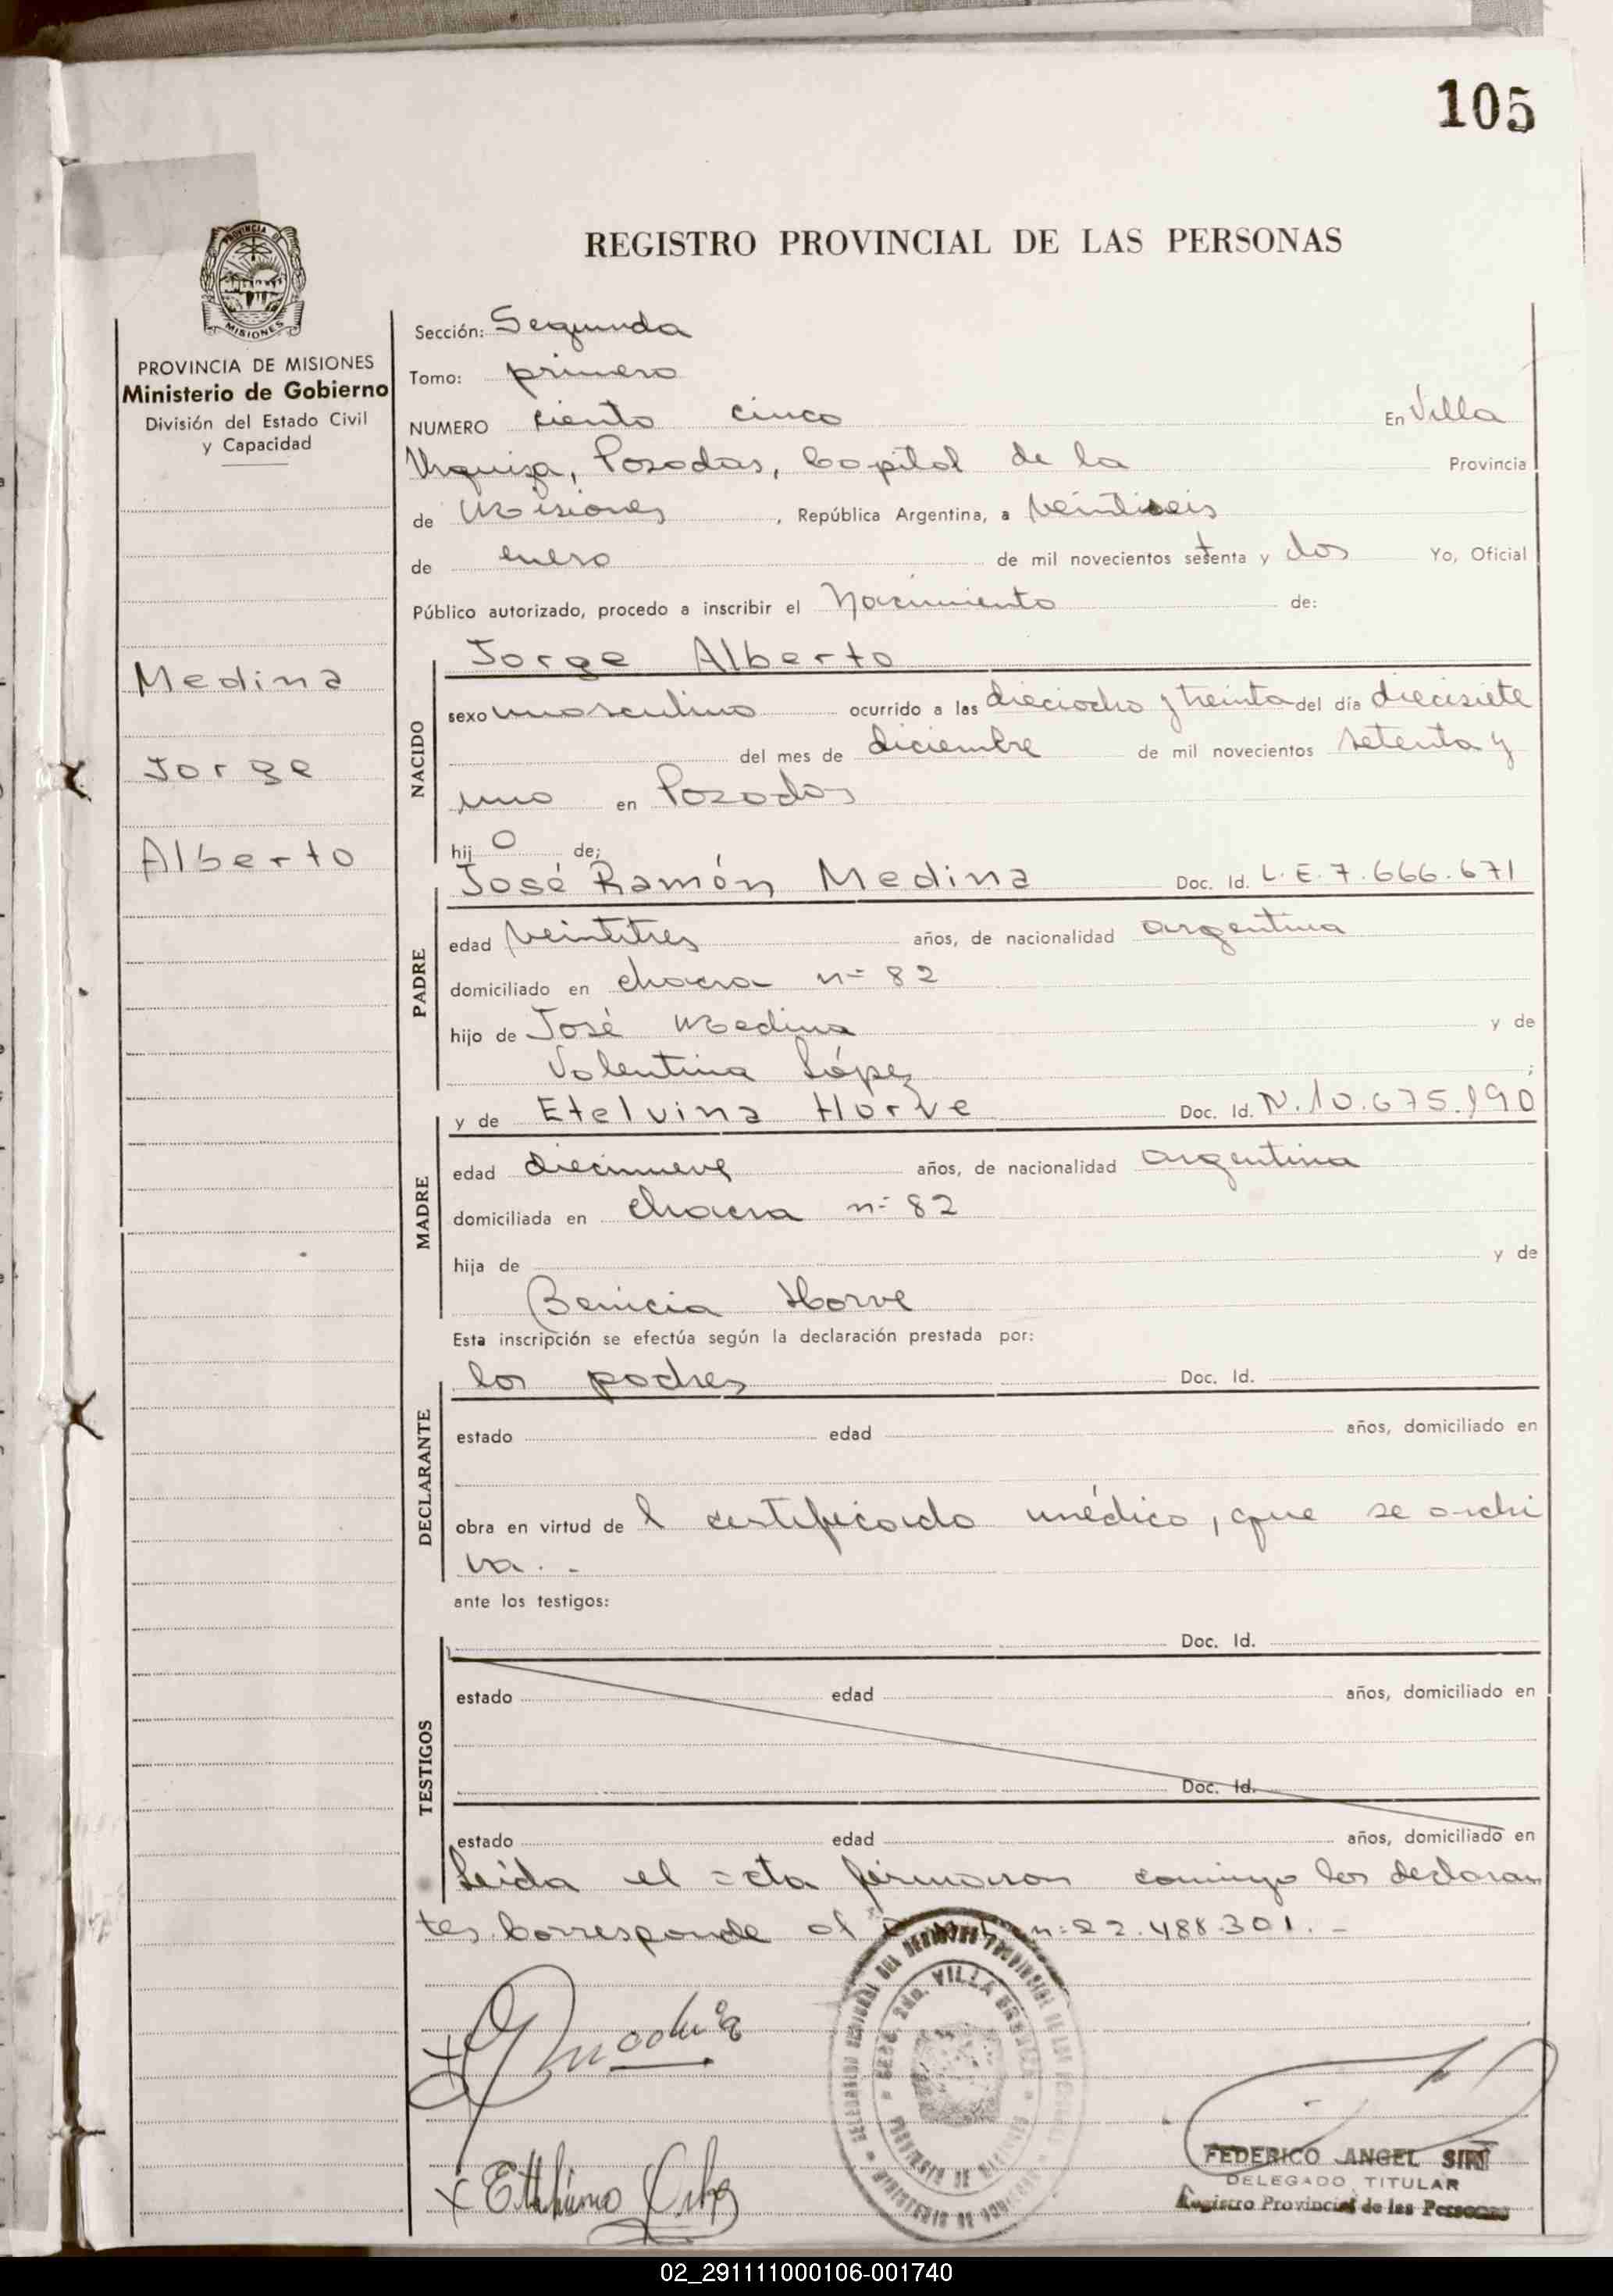 105
REGISTRO PROVINCIAL DE LAS PERSONAS
PROVINCIA DE MISIONES
PROVINCIA DE MISIONES
Ministerio de Gobierno
División del Estado Civil
y Capacidad
Medina
Jorge
Alberto
Sección: Segunda
Tomo: primero
NUMERO ciento cinco En Villa
Urquiza, Posadas, Capital de la Provincia
de Misiones, República Argentina, a veintiseis
de enero de mil novecientos setenta y dos Yo, Oficial
Público autorizado, procedo a inscribir el Nacimiento de:
Jorge Alberto
NACIDO
sexo masculino ocurrido a las dieciocho y treinta del día diecisiete
del mes de diciembre de mil novecientos setenta y
uno en Posadas
hijo de;
José Ramón Medina Doc. Id. L.E. 7.666.671
PADRE
edad veintitres años, de nacionalidad argentina
domiciliado en chacra n= 82
hijo de José Medina y de
Valentina López ;
y de Etelvina Horve Doc. Id. N. 10.675.190
MADRE
edad diecinueve años, de nacionalidad argentina
domiciliada en chacra n= 82
hija de y de
Benicia Horve
Esta inscripción se efectúa según la declaración prestada por:
los padres Doc. Id.
DECLARANTE
estado edad años, domiciliado en
obra en virtud del certificado médico, que se archi
va. -
ante los testigos:
Doc. Id.
TESTIGOS
estado edad años, domiciliado en
Doc. Id.
estado edad años, domiciliado en
Leida el acta firmaron conmigo los declaran
tes. Corresponde al n: 22.488.301. -
FEDERICO ANGEL SIRI
DELEGADO TITULAR
Registro Provincial de las Personas
02_291111000106-001740